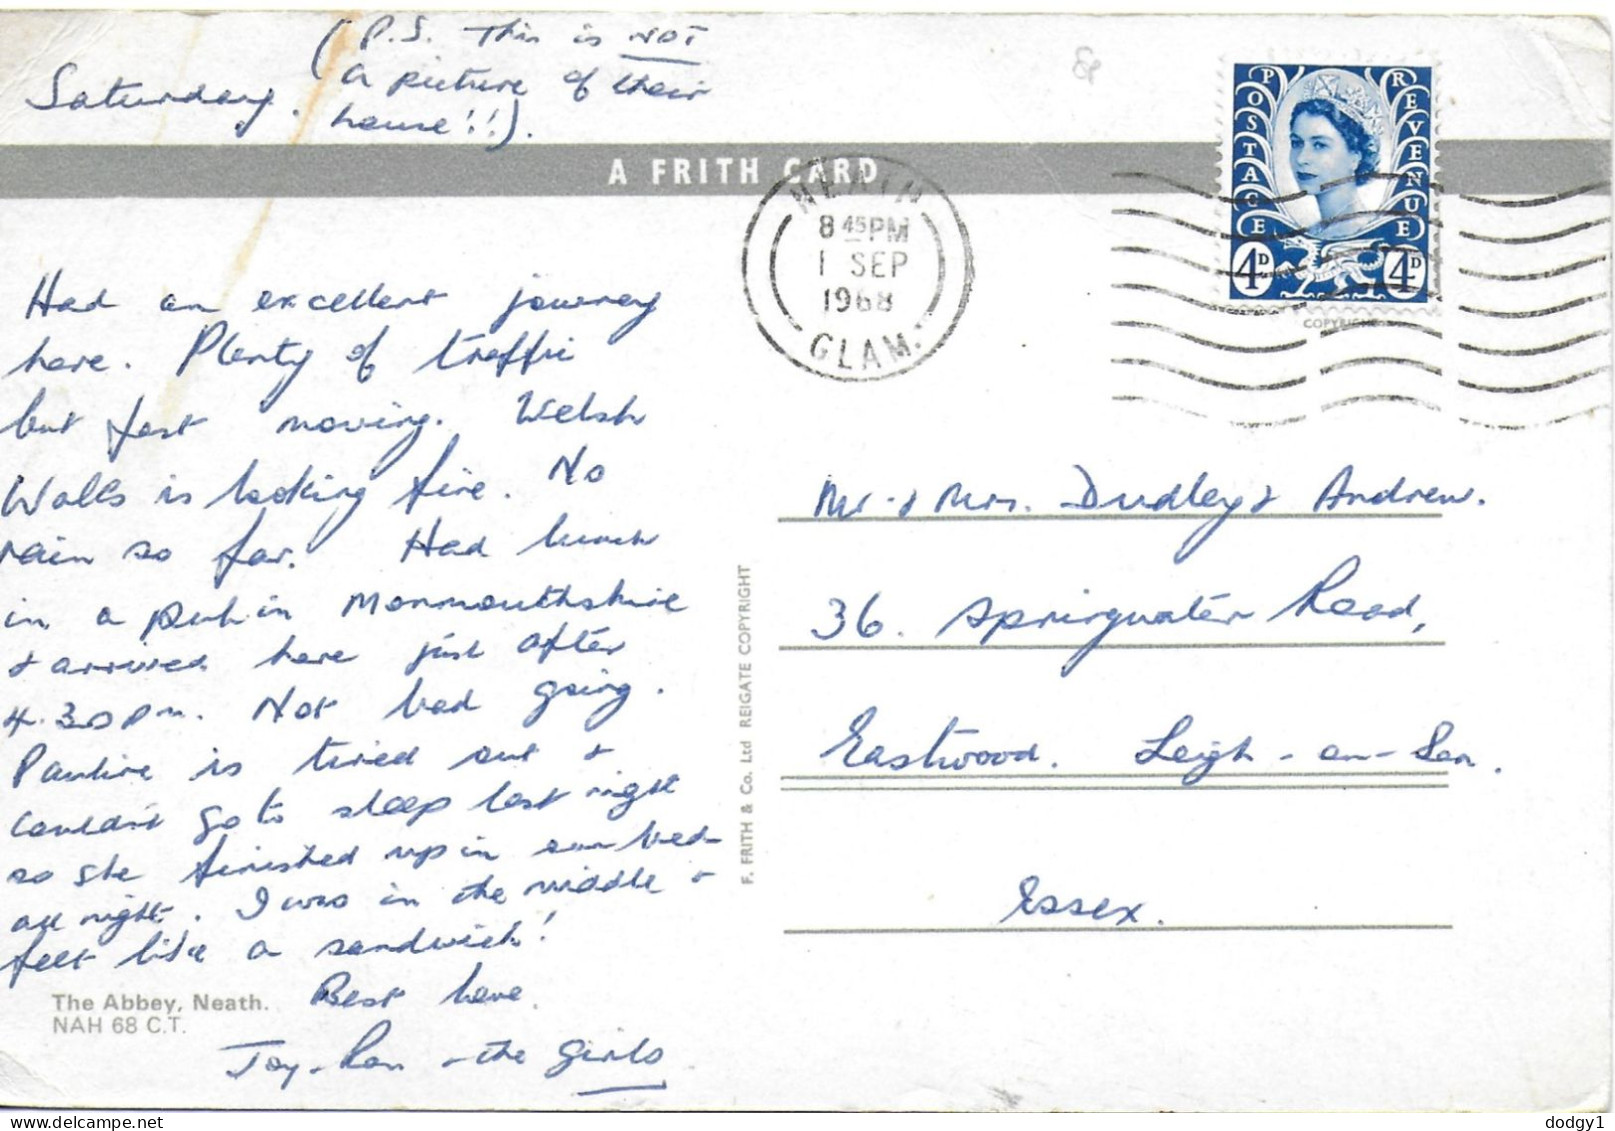 (P.S. This is NOT
a picture of their
house!!).
Saturday.
A FRITH CARD
Had an excellent journey
here. Plenty of traffic
but fast moving. Welsh
Wales is looking fine. No
rain so far. Had lunch
in a pub in Monmouthshire
& arrived here just after
4.30pm. Not bad going.
Pauline is tired out &
couldn't go to sleep last night
so she finished up in our bed
all night. I was in the middle &
felt like a sandwich!
Best love.
Joy - Ron - the girls
The Abbey, Neath.
NAH 68 C.T.
F. FRITH & Co. Ltd REIGATE COPYRIGHT
NEATH
8 45 PM
1 SEP
1968
GLAM.
POSTAGE REVENUE
4D 4D
COPYRIGHT
Mr & Mrs. Dudley & Andrew.
36. Springwater Road,
Eastwood. Leigh-on-Sea.
Essex.
dodgy1